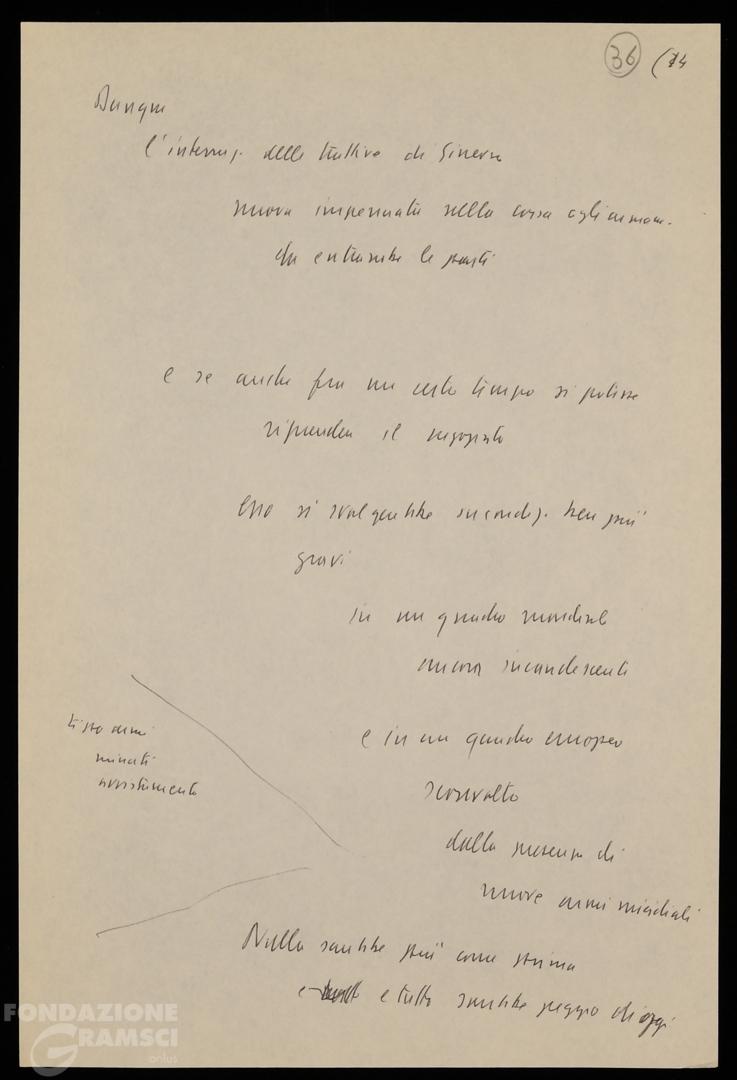 36 (14
Dunque
l'interruz. delle trattive di Ginevra
nuova impennata nella corsa agli armam.
da entrambe le parti
e se anche fra un certo tempo si potesse
riprendere il negoziato
esso si svolgerebbe in condiz. ben più
gravi
in un quadro mondiale
ancora incandescente
e in un quadro europeo
sconvolto
dalla presenza di
nuove armi micidiali
tipo armi
minuti
avvistamento
Nulla sarebbe più come prima
e tutto sarebbe peggio di oggi
FONDAZIONE
GRAMSCI
onlus